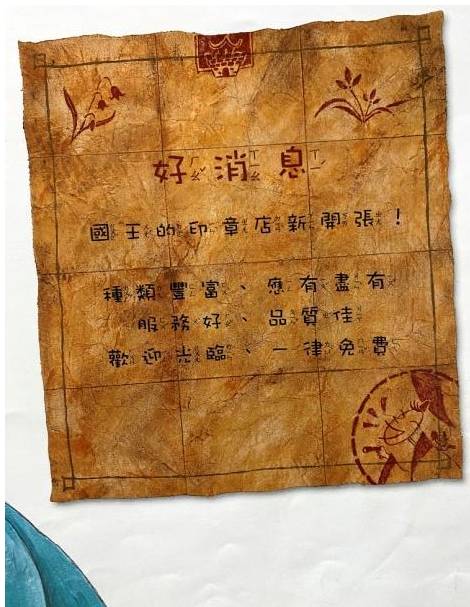 好消息
國王的印章店新開張！
種類豐富、應有盡有
服務好、品質佳
歡迎光臨、一律免費